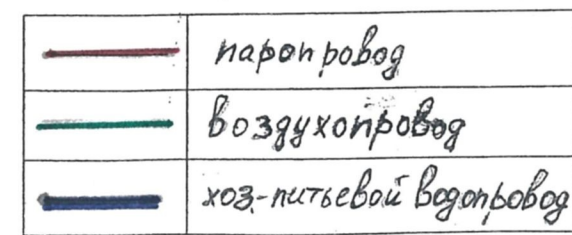 паропровод
воздухопровод
хоз-питьевой водопровод